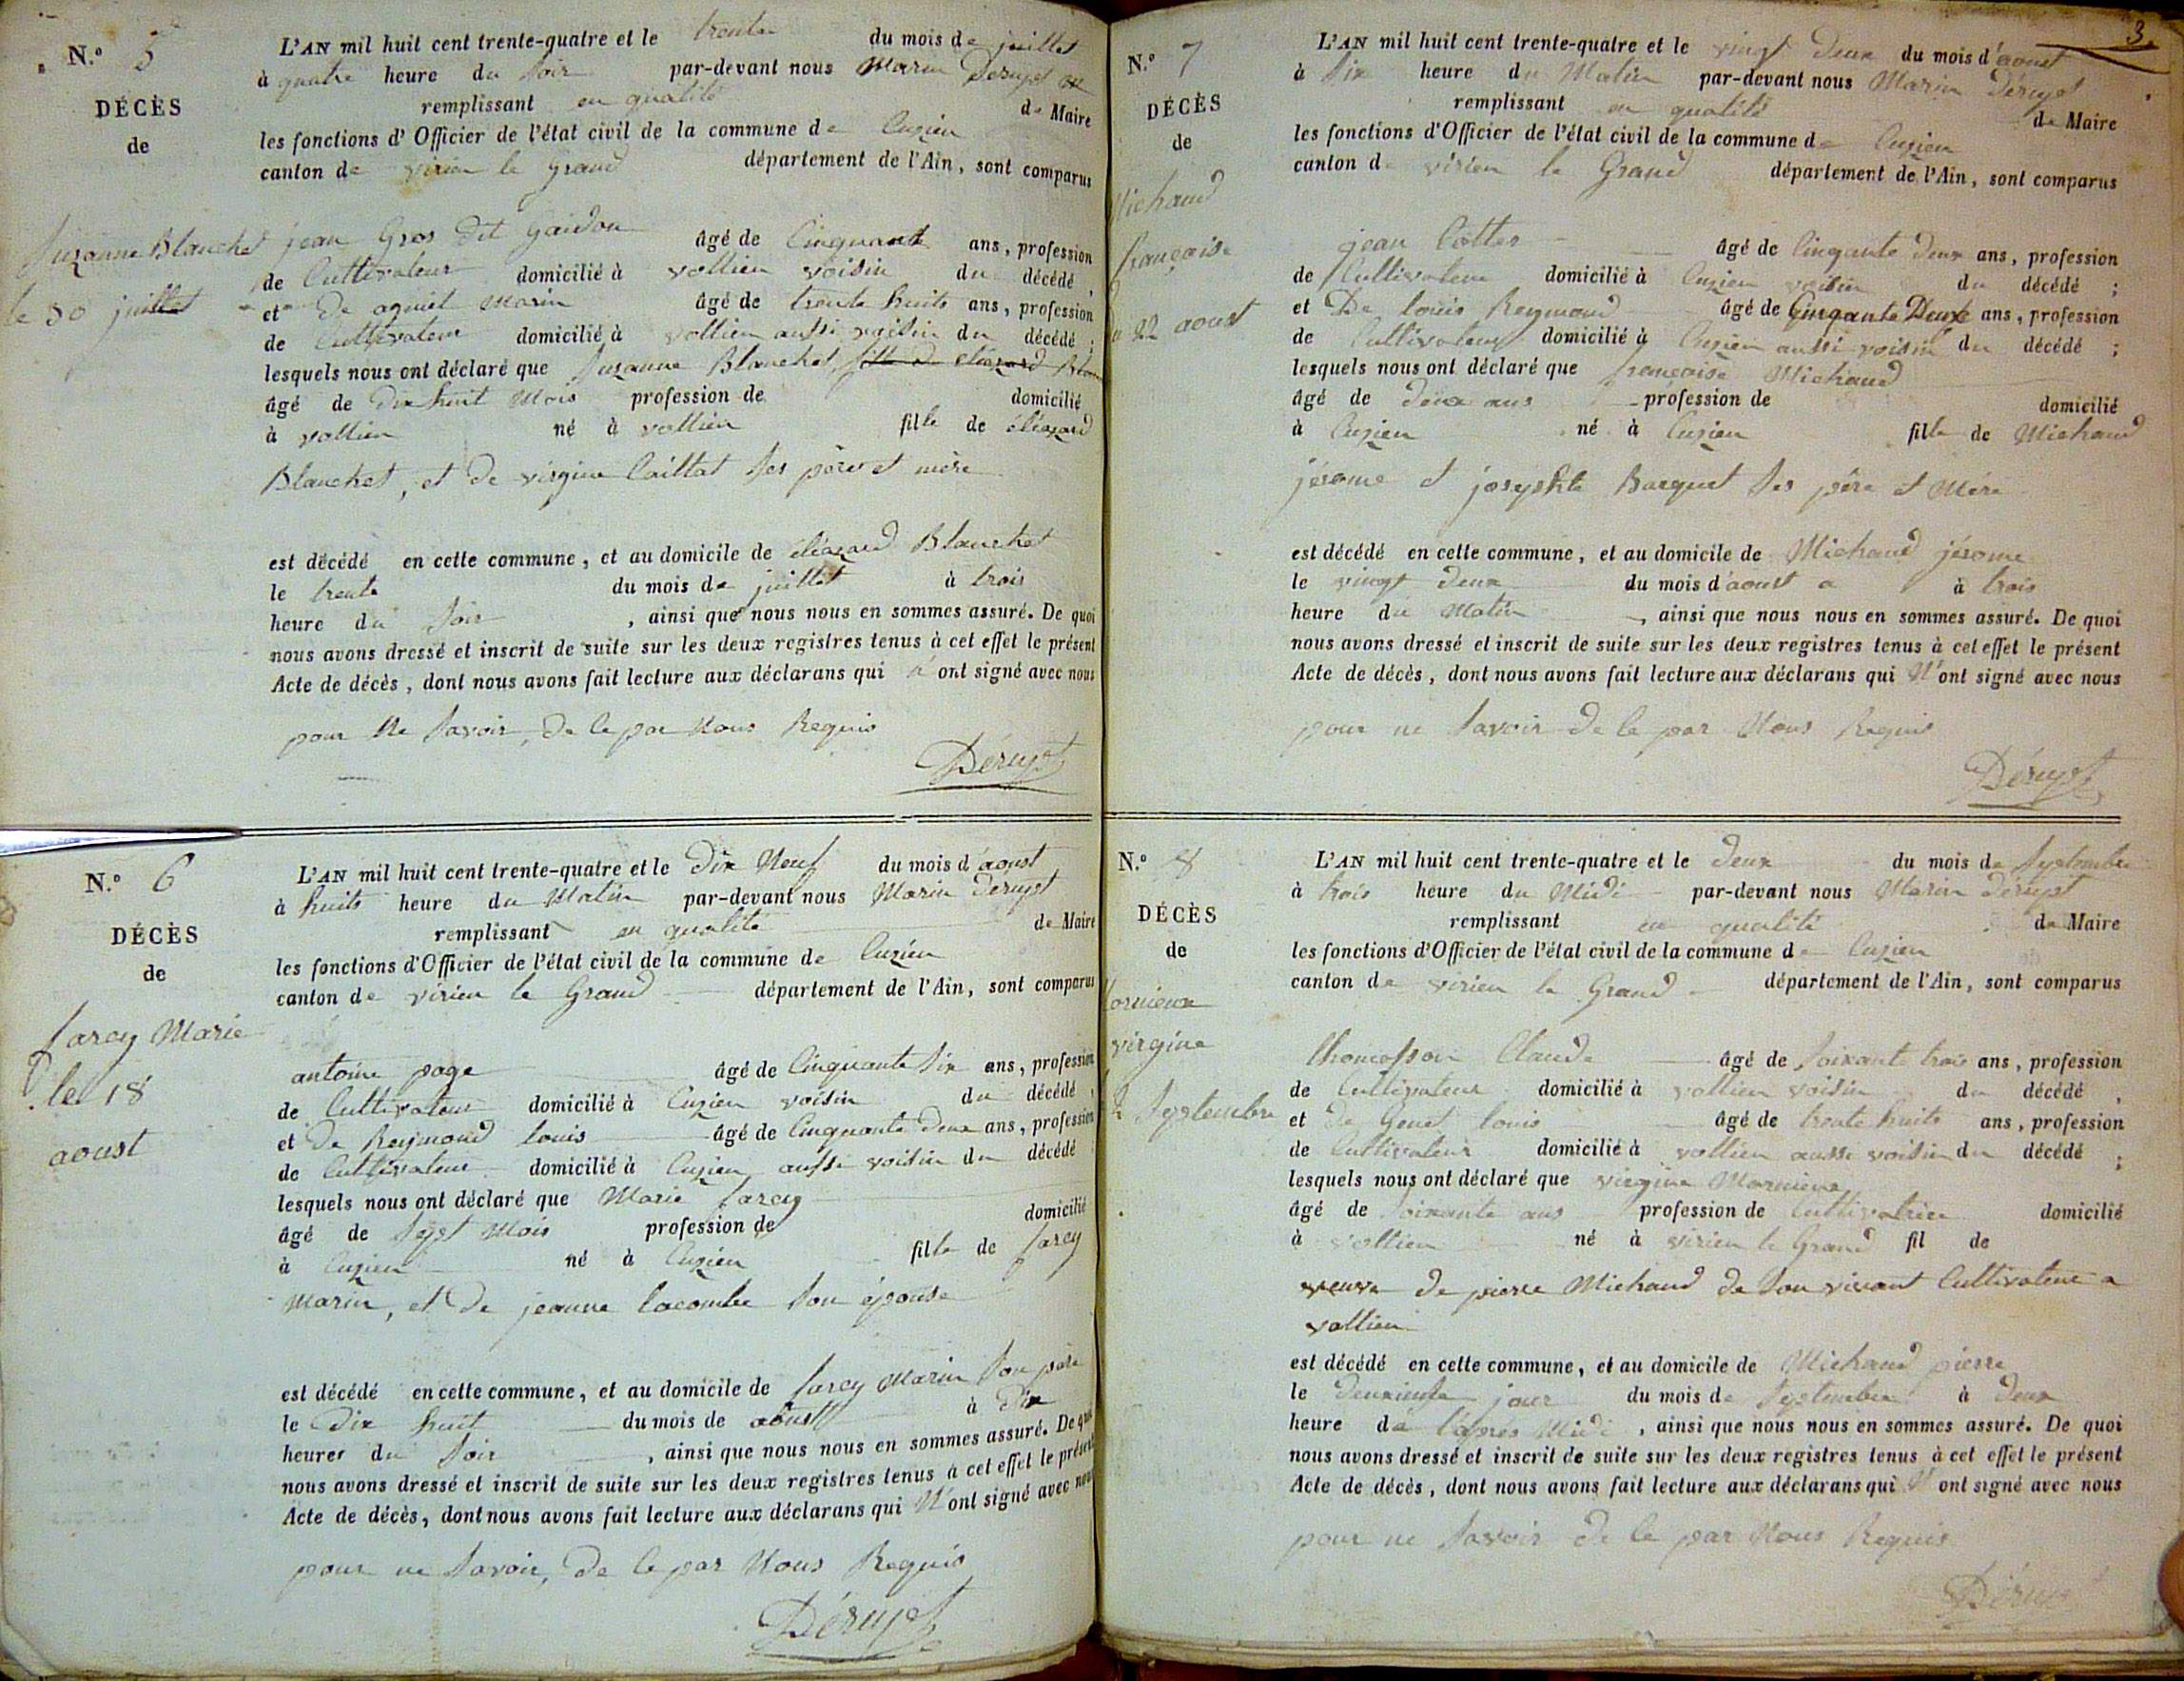 N.º 5
DÉCÈS
de
Suzanne Blanchet
le 30 juillet
L'AN mil huit cent trente-quatre et le trente du mois de juillet
à quatre heure du soir par-devant nous Marin Deruyet
remplissant en qualité de Maire
les fonctions d'Officier de l'état civil de la commune de Cuzieu
canton de virieu le grand département de l'Ain, sont comparus
jean Gros dit Gaidon âgé de Cinquante ans, profession
de Cultivateur domicilié à vollien voisin du décédé,
et de aguiet Marin âgé de trente huits ans, profession
de Cultivateur domicilié à vollien aussi voisin du décédé;
lesquels nous ont déclaré que Suzanne Blanchet fille de éléazard
âgé de dix huit Mois profession de domicilié
à vollien né à vollien fille de éléazard
Blanchet, et de virgine Caillat ses père et mère
est décédé en cette commune, et au domicile de éléazard Blanchet
le trente du mois de juillet à trois
heure du soir, ainsi que nous nous en sommes assuré. De quoi
nous avons dressé et inscrit de suite sur les deux registres tenus à cet effet le présent
Acte de décès, dont nous avons fait lecture aux déclarans qui n'ont signé avec nous
pour Ne savoir, de ce par Nous Requis
Déruyet
N.º 6
DÉCÈS
de
Sarcy Marie
le 18
aoust
L'AN mil huit cent trente-quatre et le Dix Neuf du mois d'aoust
à huits heure du Matin par-devant nous Marin Deruyet
remplissant en qualité de Maire
les fonctions d'Officier de l'état civil de la commune de Cuzieu
canton de virieu le Grand département de l'Ain, sont comparus
antoine page âgé de Cinquante six ans, profession
de Cultivateur domicilié à Cuzieu voisin du décédé,
et de Reymond louis âgé de Cinquante deux ans, profession
de Cultivateur domicilié à Cuzieu aussi voisin du décédé
lesquels nous ont déclaré que Marie Sarcy
âgé de Sept Mois profession de domicilié
à Cuzieu né à Cuzieu fille de Sarcy
Marin, et de jeanne lacombe son épouse
est décédé en cette commune, et au domicile de Sarcy Marin son père
le Dix huit du mois de aoust à Dix
heures du soir, ainsi que nous nous en sommes assuré. De quoi
nous avons dressé et inscrit de suite sur les deux registres tenus à cet effet le présent
Acte de décès, dont nous avons fait lecture aux déclarans qui N'ont signé avec nous
pour ne savoir, de ce par Nous Requis
Déruyet
3.
N.º 7
DÉCÈS
de
Michaud
françoise
22 aoust
L'AN mil huit cent trente-quatre et le vingt deux du mois d'aoust
à Six heure du Matin par-devant nous Marin Déruyet
remplissant en qualité de Maire
les fonctions d'Officier de l'état civil de la commune de Cuzieu
canton de virieu le Grand département de l'Ain, sont comparus
jean Cottes âgé de Cinqante deux ans, profession
de Cultivateur domicilié à Cuzieu voisin du décédé;
et De louis Reymond âgé de Cinqante Deuxe ans, profession
de Cultivateur domicilié à Cuzieu aussi voisin du décédé;
lesquels nous ont déclaré que françoise Michaud
âgé de deux ans profession de domicilié
à Cuzieu né à Cuzieu fille de Michaud
jérome et josephte Barquet ses père et Mère
est décédé en cette commune, et au domicile de Michaud jérome
le vingt deux du mois d'aoust a à trois
heure du Matin, ainsi que nous nous en sommes assuré. De quoi
nous avons dressé et inscrit de suite sur les deux registres tenus à cet effet le présent
Acte de décès, dont nous avons fait lecture aux déclarans qui N'ont signé avec nous
pour ne savoir de ce par Nous Requis
Déruyet
N.º 8
DÉCÈS
de
virgine
2 Septembre
L'AN mil huit cent trente-quatre et le deux du mois de Septembre
à trois heure du Midi par-devant nous Marin deruyet
remplissant en qualité de Maire
les fonctions d'Officier de l'état civil de la commune de Cuzieu
canton de virieu le Grand département de l'Ain, sont comparus
thomasson Claude âgé de Soixante trois ans, profession
de Cultivateur domicilié à vollien voisin du décédé,
et de Genet louis âgé de trente huits ans, profession
de Cultivateur domicilié à vollien aussi voisin du décédé;
lesquels nous ont déclaré que virgine Mornieux
âgé de Soixante ans profession de Cultivatrice domicilié
à vollien né à virieu le Grand fil de
veuve de pierre Michaud de son vivant Cultivateur a
vollien
est décédé en cette commune, et au domicile de Michaud pierre
le deuxieme jour du mois de Septembre à deux
heure de l'après Midi, ainsi que nous nous en sommes assuré. De quoi
nous avons dressé et inscrit de suite sur les deux registres tenus à cet effet le présent
Acte de décès, dont nous avons fait lecture aux déclarans qui N'ont signé avec nous
pour ne savoir de ce par Nous Requis
Déruyet